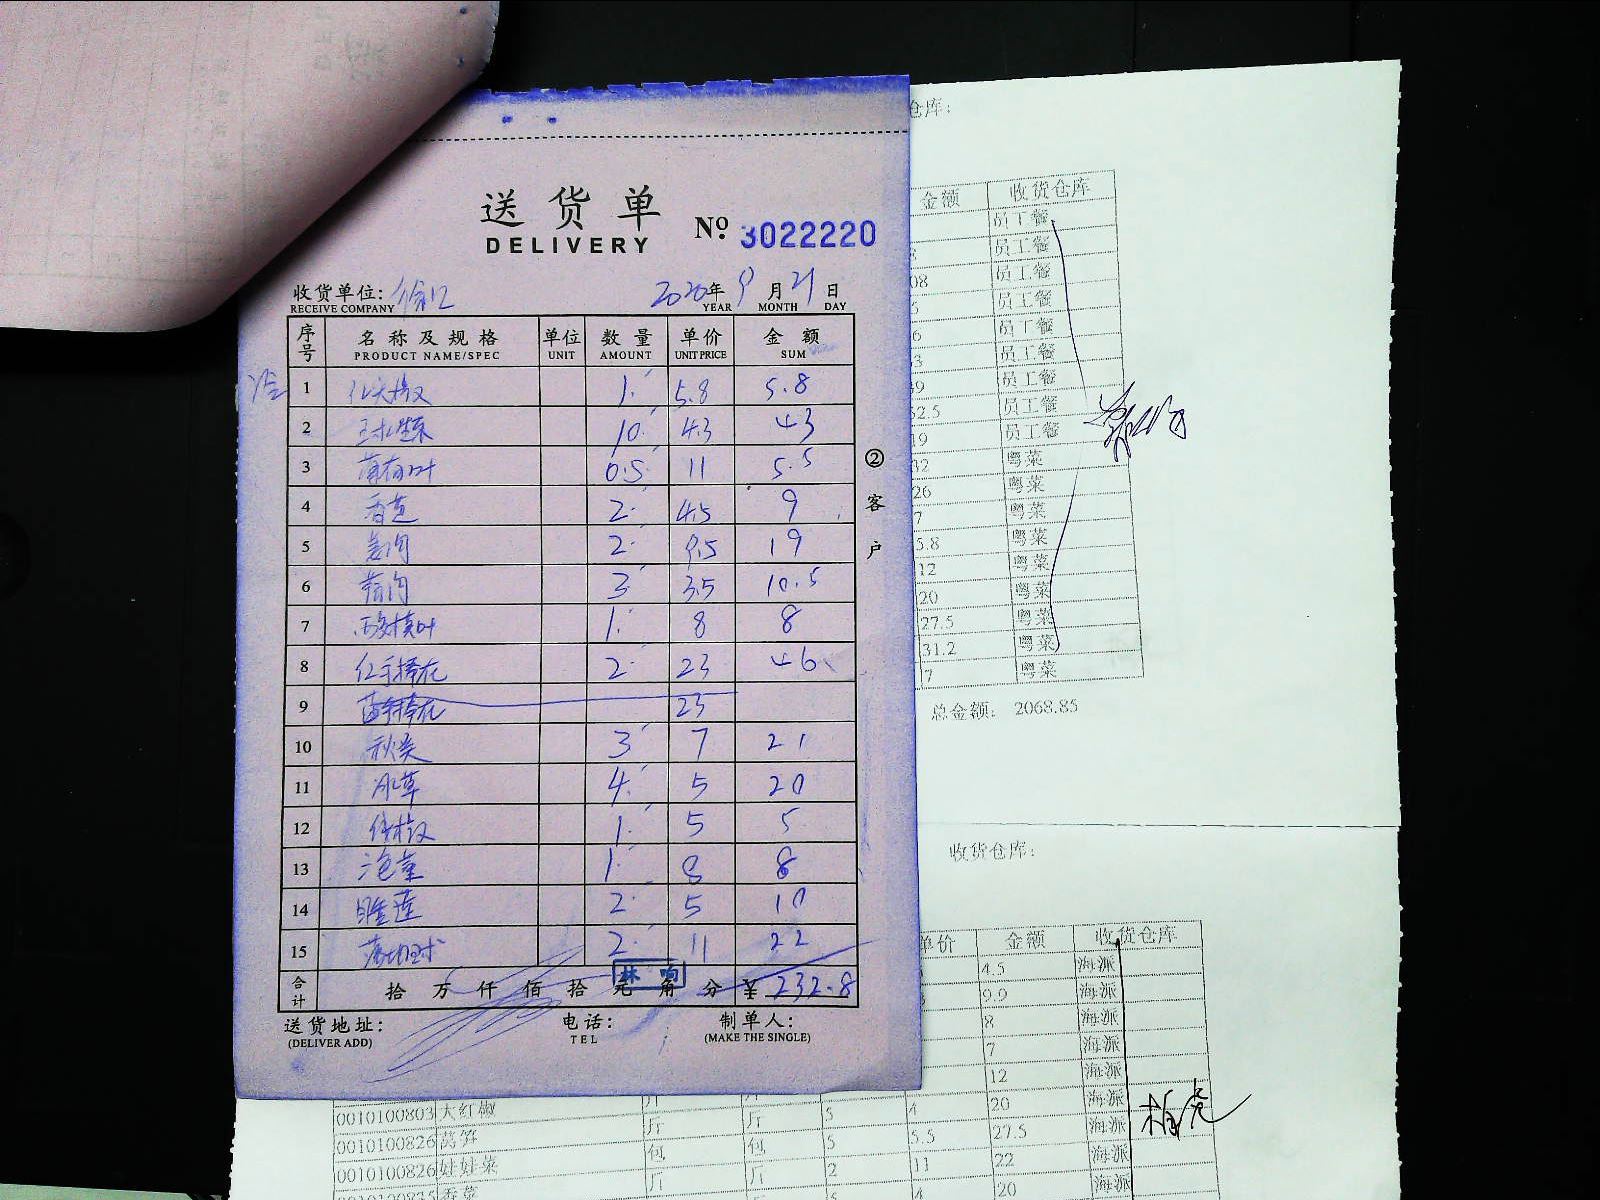 送货单
DELIVERY
№ 3022220
收货单位: 徐汇 2020年9月21日
RECEIVE COMPANY YEAR MONTH DAY
序号 名称及规格 单位 数量 单价 金额
PRODUCT NAME/SPEC UNIT AMOUNT UNIT PRICE SUM
冷 1 红尖椒 1 5.8 5.8
2 10 4.3 43
3 薄荷叶 0.5 11 5.5
4 香芒 2 4.5 9
5 姜肉 2 9.5 19
6 蒜肉 3 3.5 10.5
7 酸模叶 1 8 8
8 红手捧花 2 23 46
9 蓝手捧花 23
10 秋葵 3 7 21
11 冰草 4 5 20
12 1 5 5
13 泡菜 1 8 8
14 睡莲 2 5 10
15 2 11 22
合计 拾万仟佰拾元角分 ¥232.8
林响
送货地址: 电话: 制单人:
(DELIVER ADD) TEL (MAKE THE SINGLE)
②客户
仓库:
金额 收货仓库
员工餐
员工餐
08 员工餐
员工餐
6 员工餐
3 员工餐
9 员工餐
52.5 员工餐
19 员工餐
32 粤菜
26 粤菜
7 粤菜
5.8 粤菜
12 粤菜
20 粤菜
27.5 粤菜
31.2 粤菜
7 粤菜
总金额: 2068.85
收货仓库:
单价 金额 收货仓库
4.5 海派
9.9 海派
8 海派
7 海派
12 海派
0010100803 大红椒 斤 斤 5 4 20 海派
0010100826 莴笋 斤 斤 5 5.5 27.5 海派
0010100826 娃娃菜 包 包 2 11 22 海派
0010100835 香菜 斤 斤 5 4 20 海派